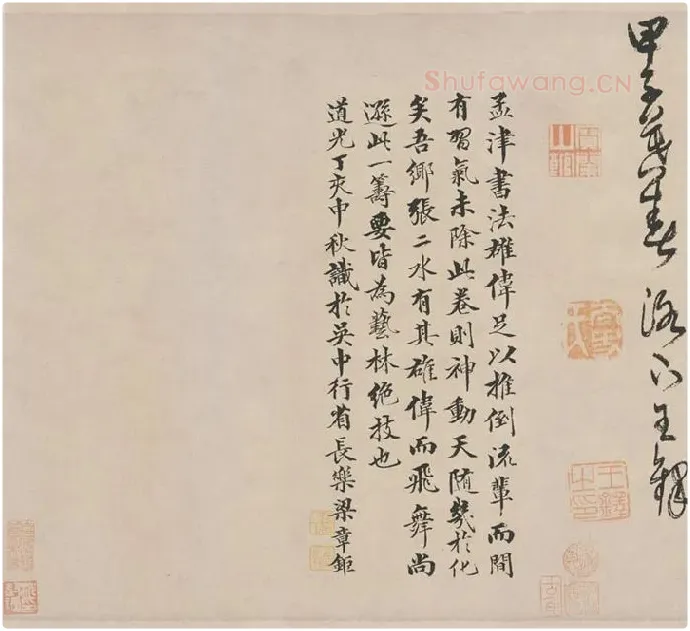 Shufawang.CN
甲子莫春 下王鐸
王鐸之印
孟津書法雄偉足以推倒流輩而間
有習氣未除此卷則神動天隨幾於化
矣吾鄉張二水有其雄偉而飛舞尚
遜此一籌要皆為藝林絕技也
道光丁亥中秋識於吳中行省長樂梁章鉅